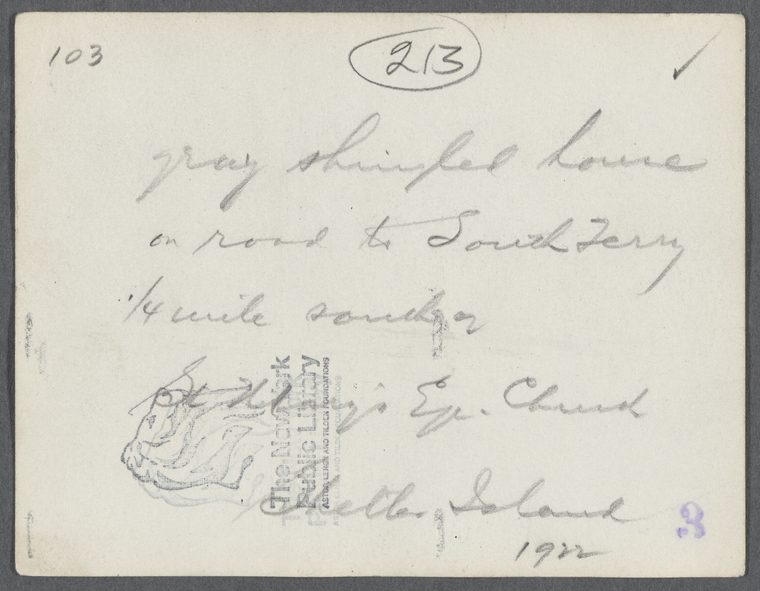 103
213
✓
gray shingled house
on road to South Ferry
1/4 mile south of
St Mary's Ep. Church
Shelter Island
1922
3
The New York
Public Library
ASTOR LENOX AND TILDEN FOUNDATIONS